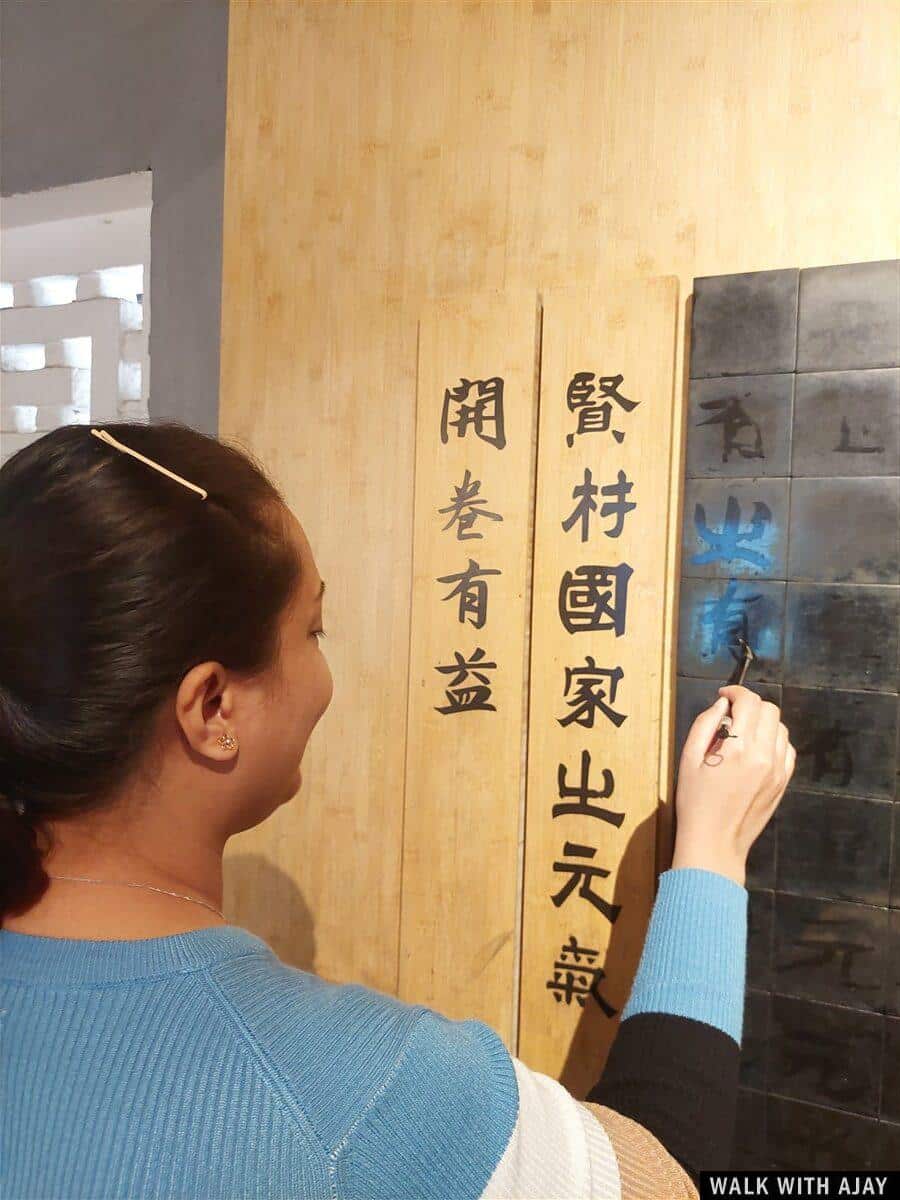 之有
賢材國家之元氣
開卷有益
WALK WITH AJAY